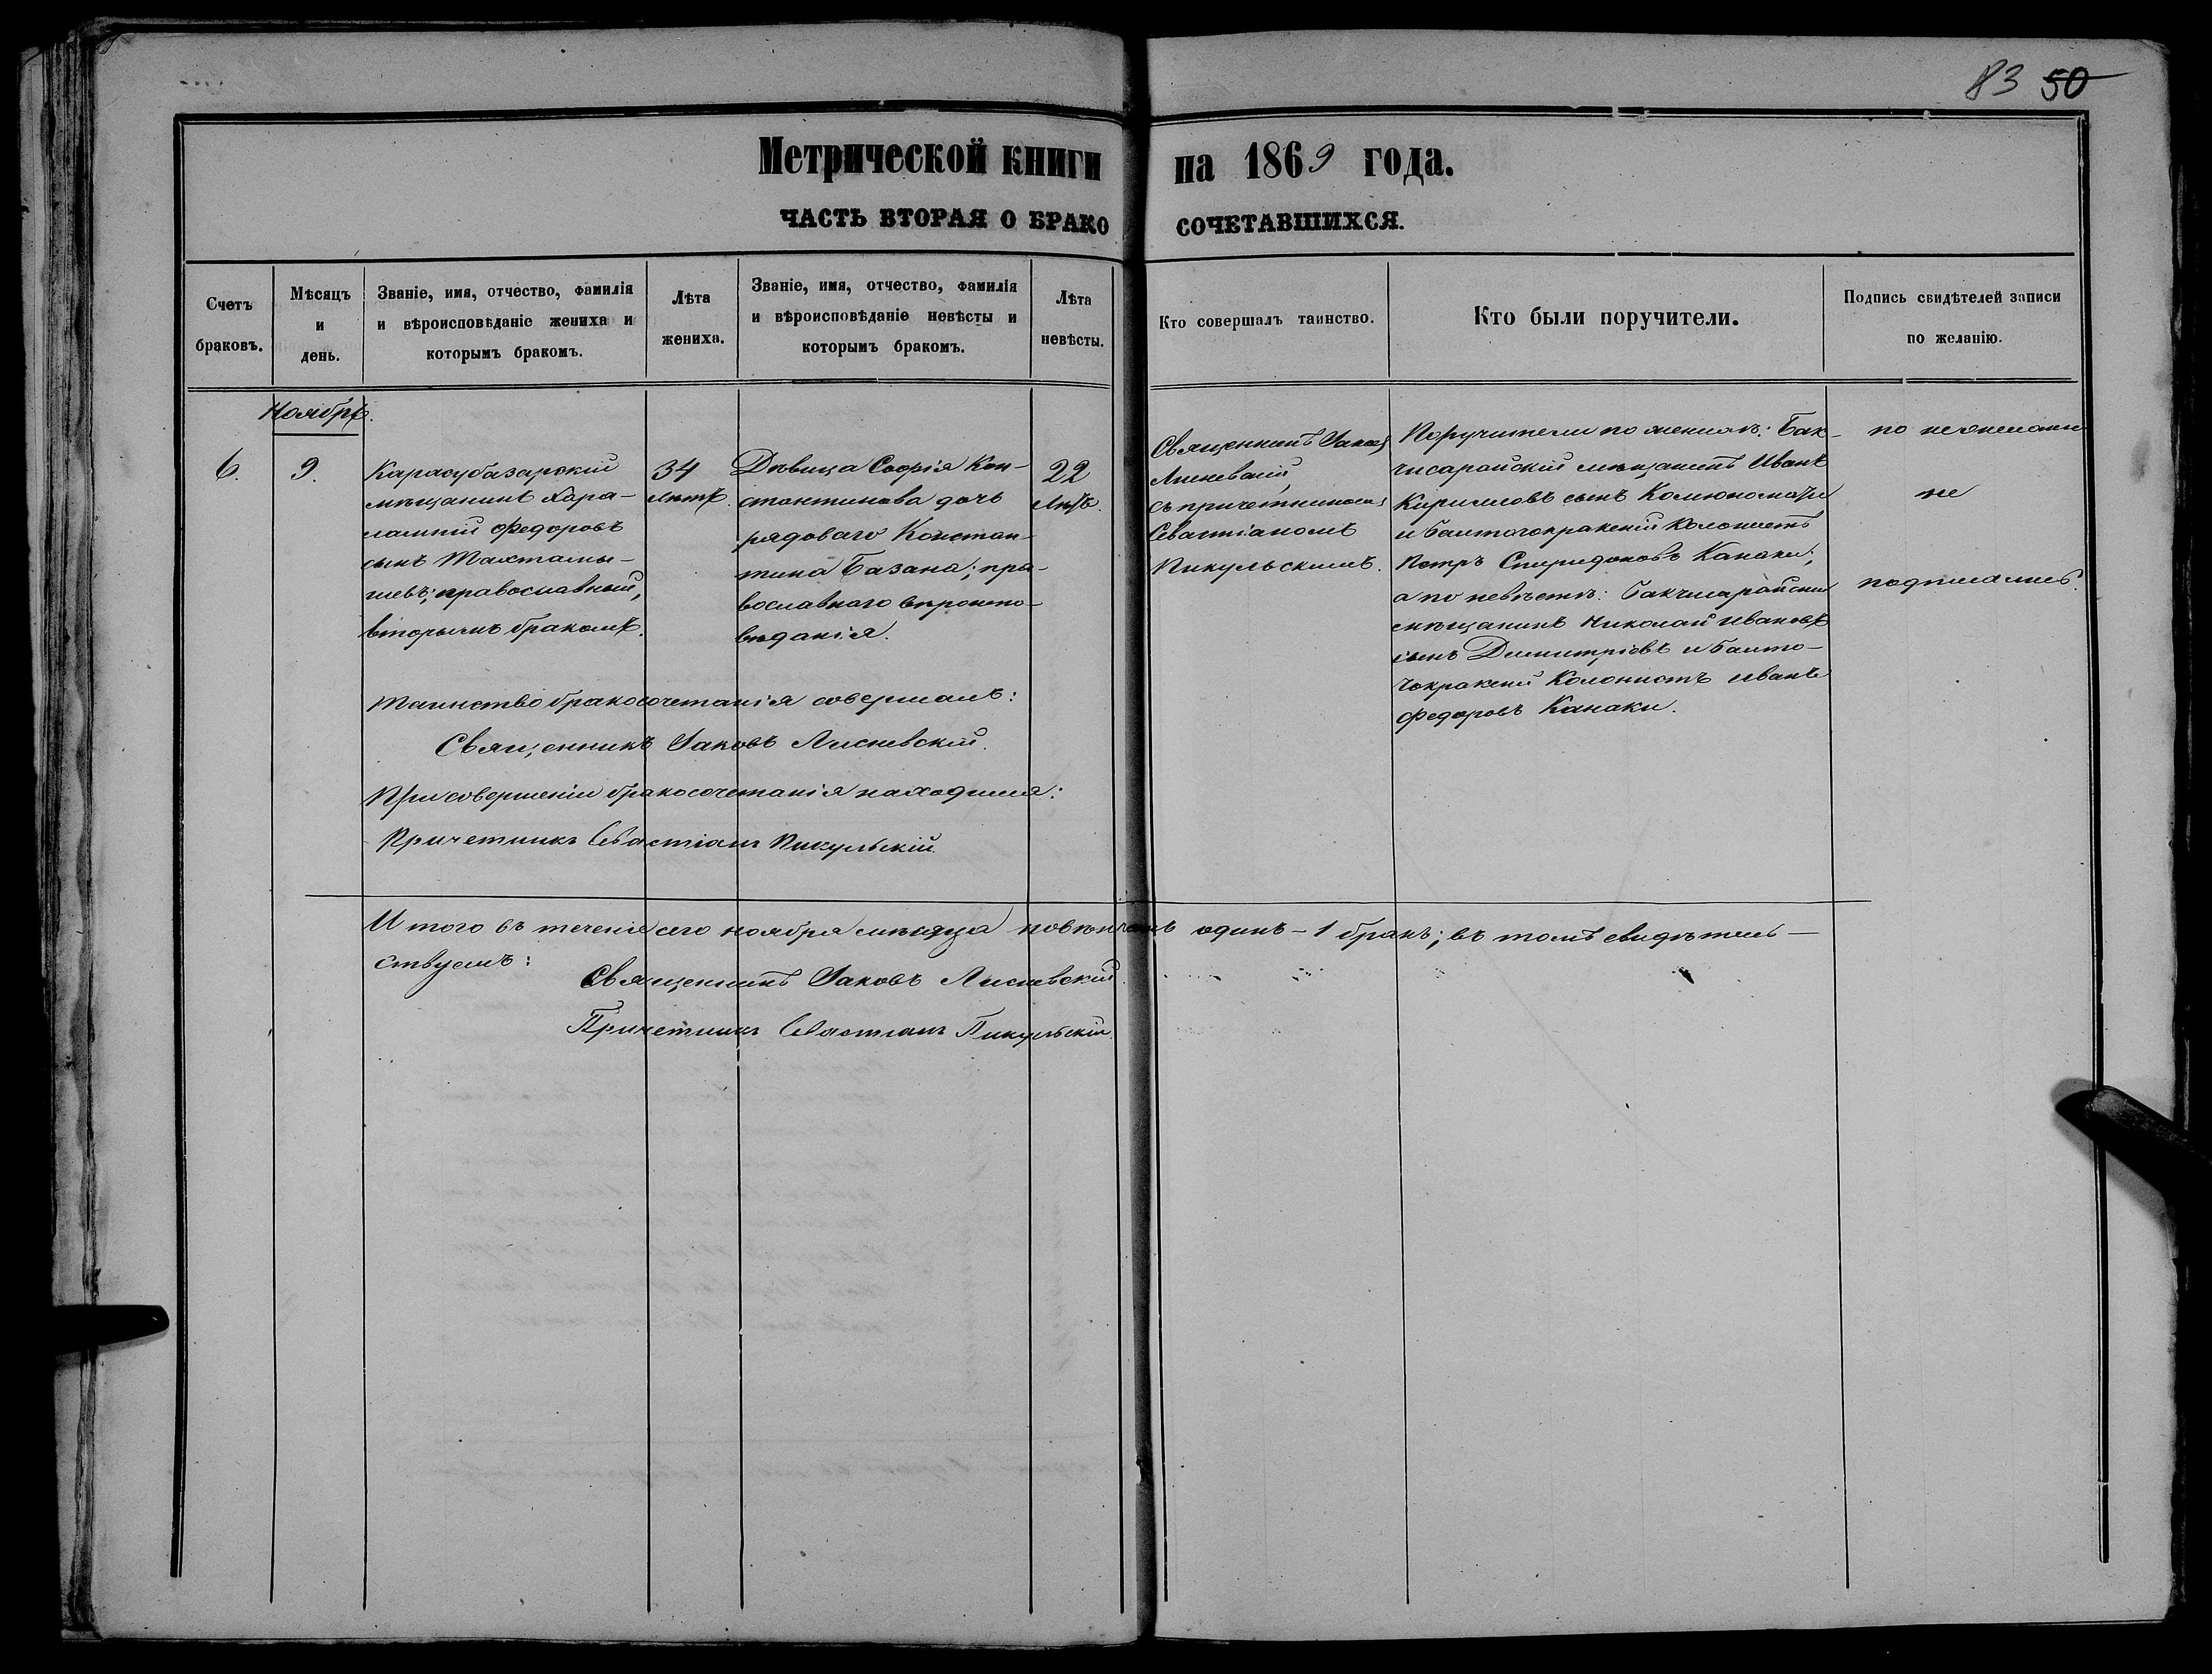 83 50
Метрической книги на 1869 года.
ЧАСТЬ ВТОРАЯ О БРАКОСОЧЕТАВШИХСЯ.
Счетъ
браковъ.
Мѣсяцъ
и
день.
Званіе, имя, отчество, фамилія
и вѣроисповѣданіе жениха и
которымъ бракомъ.
Лѣта
жениха.
Званіе, имя, отчество, фамилія
и вѣроисповѣданіе невѣсты и
которымъ бракомъ.
Лѣта
невѣсты.
Кто совершалъ таинство.
Кто были поручители.
Подпись свидѣтелей записи
по желанію.
Ноябрь.
6.
9.
Карасубазарскій
мѣщанинъ Хара-
лампій Федоровъ
сынъ Тахтамы-
шевъ; православный,
вторымъ бракомъ.
34
лѣтъ.
Дѣвица Софія Кон-
стантинова дочь
рядоваго Констан-
тина Базана; пра-
вославнаго вѣроиспо-
вѣданія.
22
лѣтъ.
Священникъ Іаковъ
Лисневскій
съ причетникомъ
Севастіаномъ
Пикульскимъ.
Поручители по женихѣ: Бак-
чисарайскій мѣщанинъ Иванъ
Кирилловъ сынъ
и колонистъ
Петръ Спиридоновъ Канаки;
а по невѣстѣ: Бакчисарайскій
мѣщанинъ Николай Ивановъ
сынъ Димитріевъ и
Колонистъ Иванъ
Федоровъ Канаки.
по нежеланію
не
подписались.
Таинство бракосочетанія совершалъ:
Священникъ Іаковъ Лисневскій.
При совершеніи бракосочетанія находился:
Причетникъ Севастіанъ Пикульскій.
Итого въ теченіе сего ноября мѣсяца повѣнчанъ одинъ – 1 бракъ; въ томъ свидѣтель-
ствуемъ:
Священникъ Іаковъ Лисневскій.
Причетникъ Севастіанъ Пикульскій.